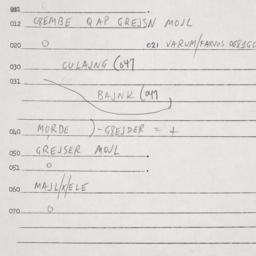 012 GREMBE QAP GREJSN MOJL
020 O 021 VARUM/FARVOS
030 CULAJNG (047
031
BAJNK (047
040 MORDE )-GREJDER = +
050 GREJSER MOJL
051 O
060 MAJL/X/ELE
070 O